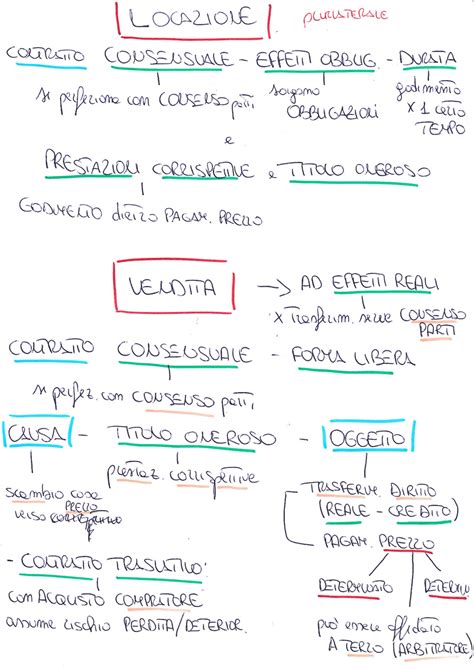 LOCAZIONE PLURILATERALE
CONTRATTO CONSENSUALE - EFFETTI OBBLIG. - DURATA
si perfeziona con CONSENSO parti
sorgono OBBLIGAZIONI
godimento x 1 certo TEMPO
e
PRESTAZIONI CORRISPETTIVE e TITOLO ONEROSO
GODIMENTO dietro PAGAM. PREZZO
VENDITA → AD EFFETTI REALI
x trasferim. serve CONSENSO PARTI
CONTRATTO CONSENSUALE - FORMA LIBERA
si perfez. con CONSENSO parti
CAUSA - TITOLO ONEROSO - OGGETTO
prestaz. corrispettive
scambio cosa verso PREZZO corrispettivo
TRASFERIM. DIRITTO
(REALE - CREDITO)
PAGAM. PREZZO
- CONTRATTO TRASLATIVO:
con ACQUISTO COMPRATORE
assume rischio PERDITA/DETERIOR.
DETERMINATO
può essere affidato
A TERZO (ARBITRATORE)